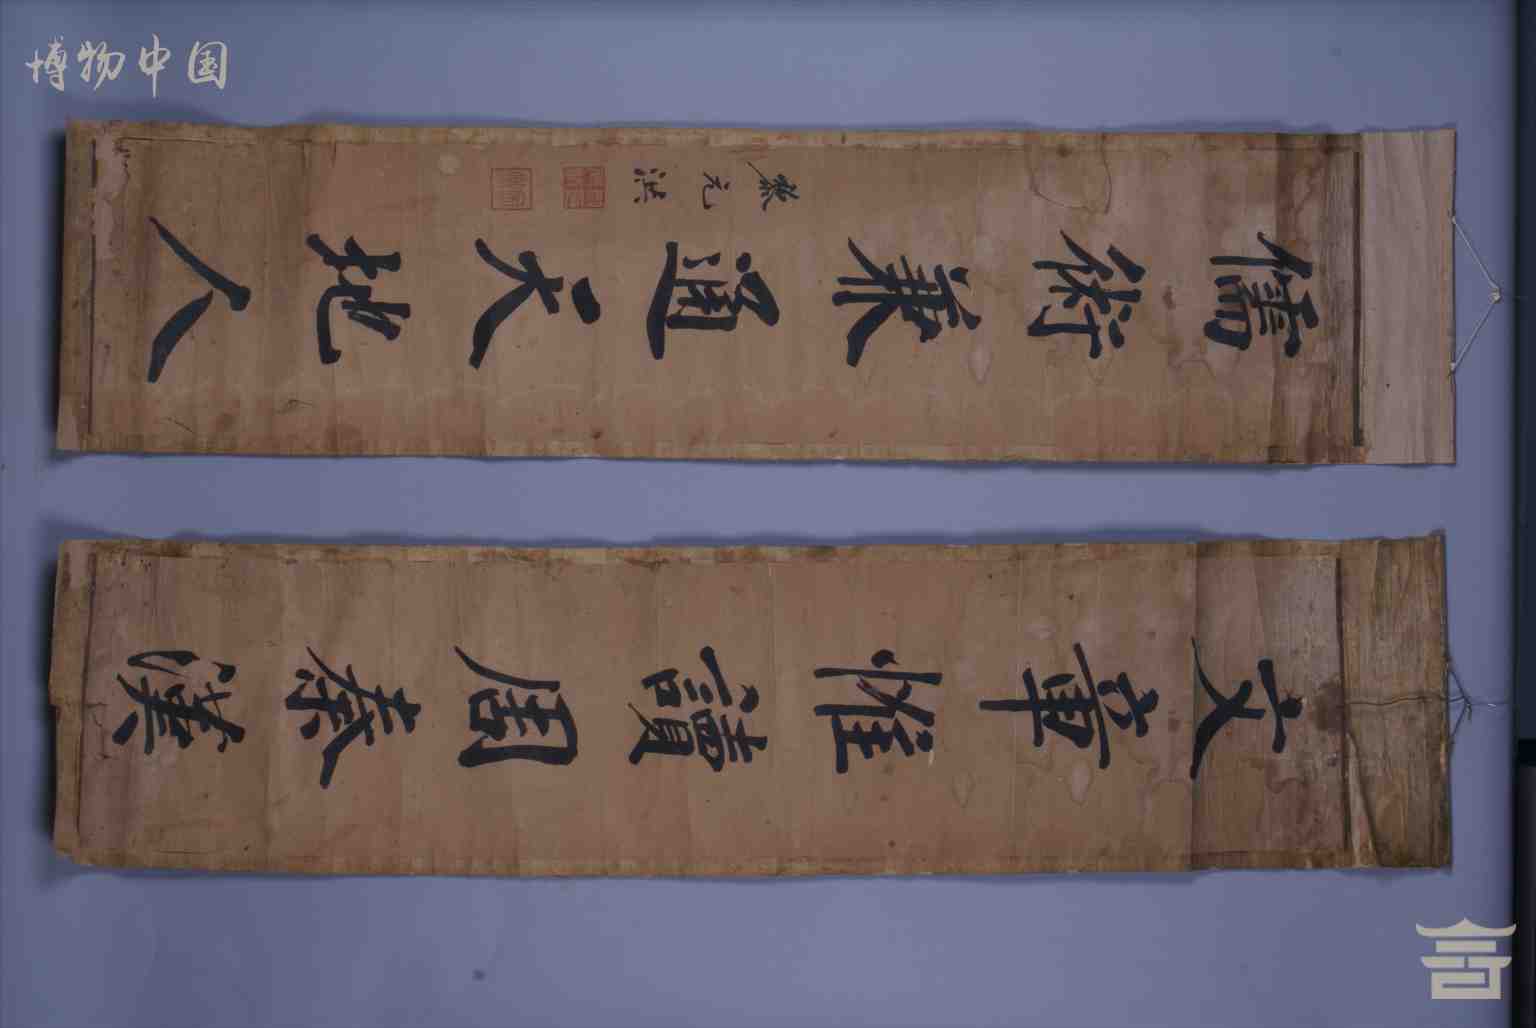 博物中国
文章惟讀周秦漢
儒術兼通天地人
黎元洪